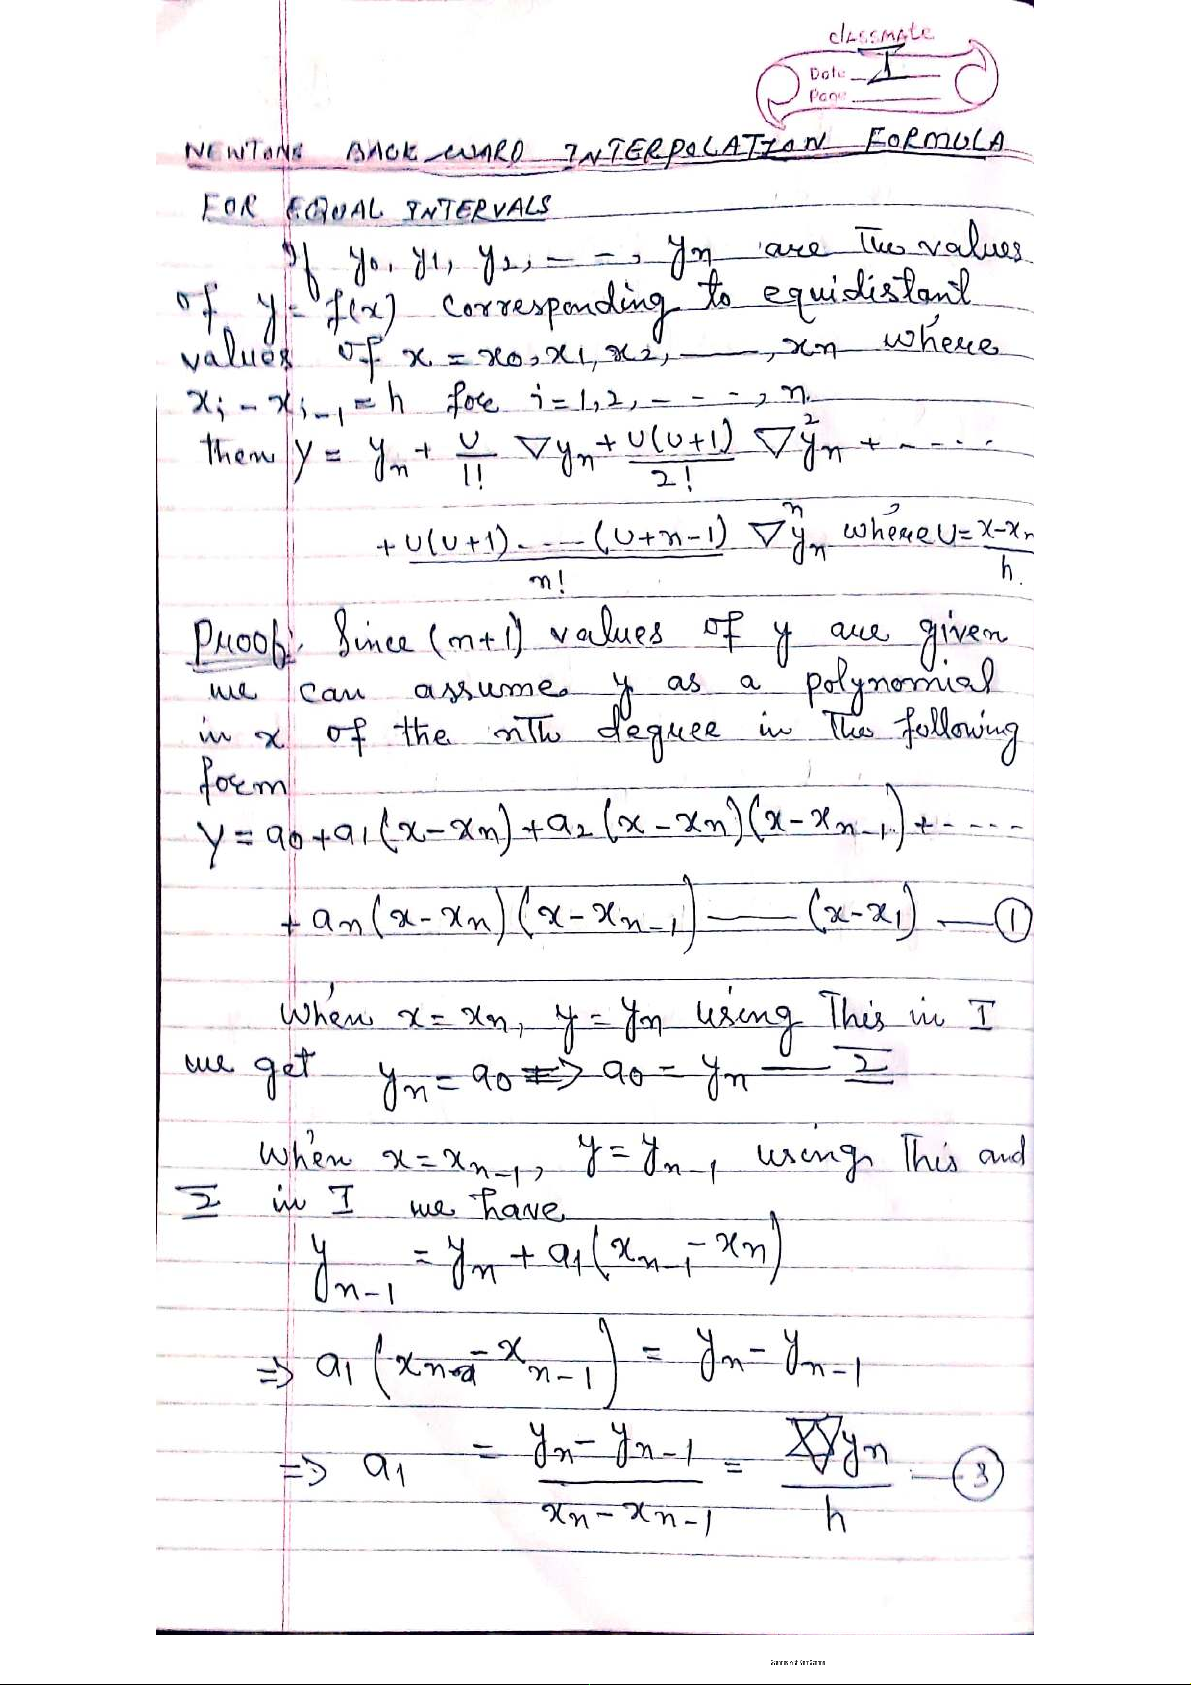 classmate
Date I
Page
NEWTONS BACK WARD INTERPOLATION FORMULA
FOR EQUAL INTERVALS
If y0, y1, y2, - - , yn are the values
of y = f(x) corresponding to equidistant
values of x = x0, x1, x2, ——, xn where
xi - xi-1 = h for i=1,2, - - -, n.
then y = yn + U/1! ∇yn + U(U+1)/2! ∇²yn + - ....
+ U(U+1) - .... (U+n-1)/n! ∇ⁿyn where U = x-xn/h.
Proof: Since (n+1) values of y are given
we can assume y as a polynomial
in x of the nth degree in the following
form
y = a0 + a1(x-xn) + a2(x-xn)(x-xn-1) + ----
+ an(x-xn)(x-xn-1) —— (x-x1) — ①
When x = xn, y = yn using This in I
we get yn = a0 ⇒ a0 = yn — 2
When x = xn-1, y = yn-1 using This and
2 in I we have
yn-1 = yn + a1(xn-1 - xn)
⇒ a1(xn - xn-1) = yn - yn-1
⇒ a1 = yn - yn-1/xn - xn-1 = ∇yn/h — ③